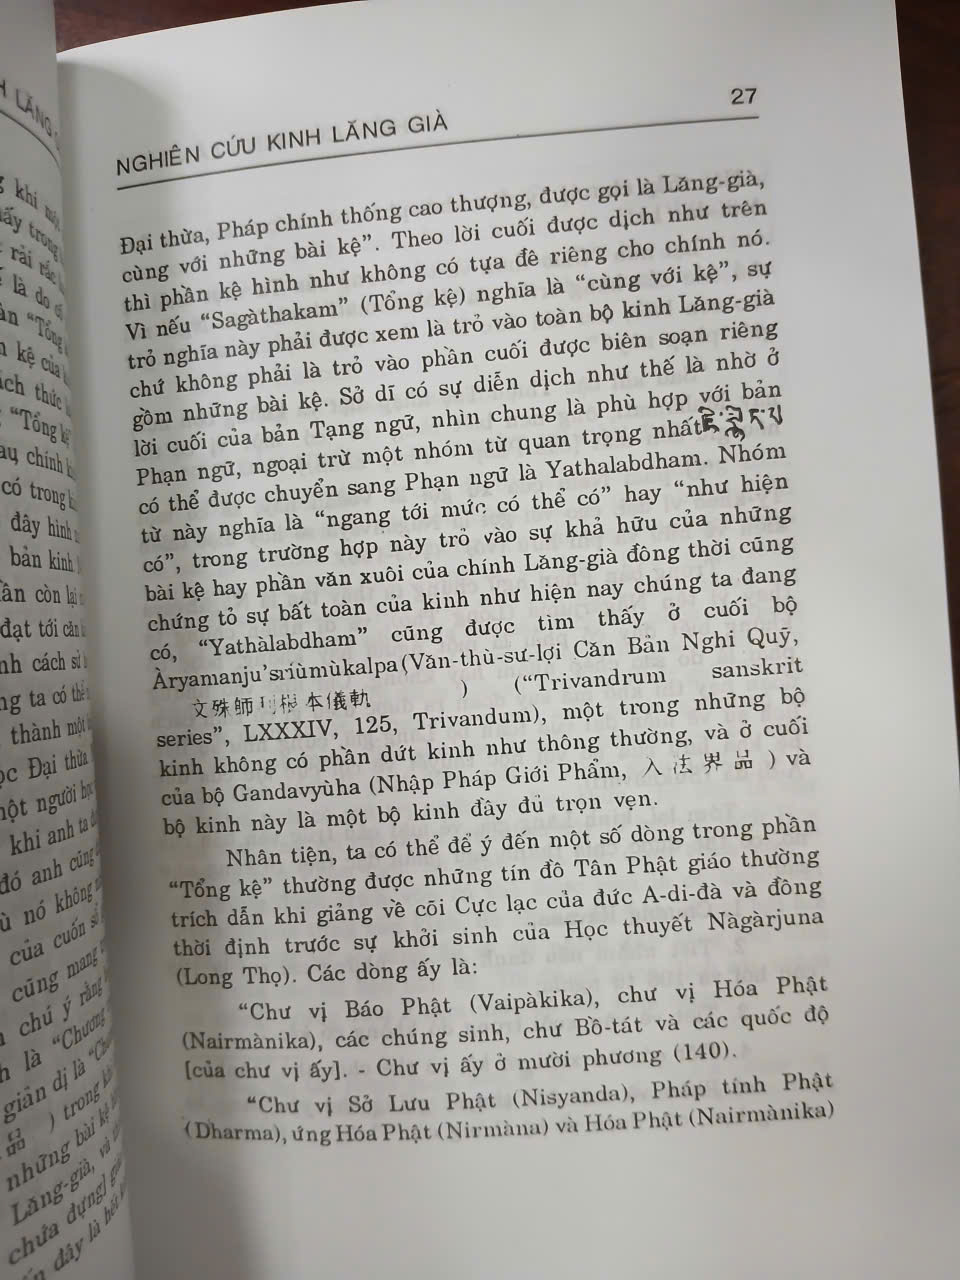 NGHIÊN CỨU KINH LĂNG GIÀ
27
Đại thừa, Pháp chính thống cao thượng, được gọi là Lăng-già,
cùng với những bài kệ”. Theo lời cuối được dịch như trên
thì phần kệ hình như không có tựa đề riêng cho chính nó.
Vì nếu “Sagàthakam” (Tổng kệ) nghĩa là “cùng với kệ”, sự
trỏ nghĩa này phải được xem là trỏ vào toàn bộ kinh Lăng-già
chứ không phải là trỏ vào phần cuối được biên soạn riêng
gồm những bài kệ. Sở dĩ có sự diễn dịch như thế là nhờ ở
lời cuối của bản Tạng ngữ, nhìn chung là phù hợp với bản
Phạn ngữ, ngoại trừ một nhóm từ quan trọng nhất
có thể được chuyển sang Phạn ngữ là Yathalabdham. Nhóm
từ này nghĩa là “ngang tới mức có thể có” hay “như hiện
có”, trong trường hợp này trỏ vào sự khả hữu của những
bài kệ hay phần văn xuôi của chính Lăng-già đồng thời cũng
chứng tỏ sự bất toàn của kinh như hiện nay chúng ta đang
có, “Yathàlabdham” cũng được tìm thấy ở cuối bộ
Àryamanju’sriùmùkalpa (Văn-thù-sư-lợi Căn Bản Nghi Quỹ,
文殊師利根本儀軌 ) (“Trivandrum sanskrit
series”, LXXXIV, 125, Trivandum), một trong những bộ
kinh không có phần dứt kinh như thông thường, và ở cuối
của bộ Gandavyùha (Nhập Pháp Giới Phẩm, 入法界品 ) và
bộ kinh này là một bộ kinh đầy đủ trọn vẹn.
Nhân tiện, ta có thể để ý đến một số dòng trong phần
“Tổng kệ” thường được những tín đồ Tân Phật giáo thường
trích dẫn khi giảng về cõi Cực lạc của đức A-di-đà và đồng
thời định trước sự khởi sinh của Học thuyết Nàgàrjuna
(Long Thọ). Các dòng ấy là:
“Chư vị Báo Phật (Vaipàkika), chư vị Hóa Phật
(Nairmànika), các chúng sinh, chư Bồ-tát và các quốc độ
[của chư vị ấy]. - Chư vị ấy ở mười phương (140).
“Chư vị Sở Lưu Phật (Nisyanda), Pháp tính Phật
(Dharma), ứng Hóa Phật (Nirmàna) và Hóa Phật (Nairmànika)